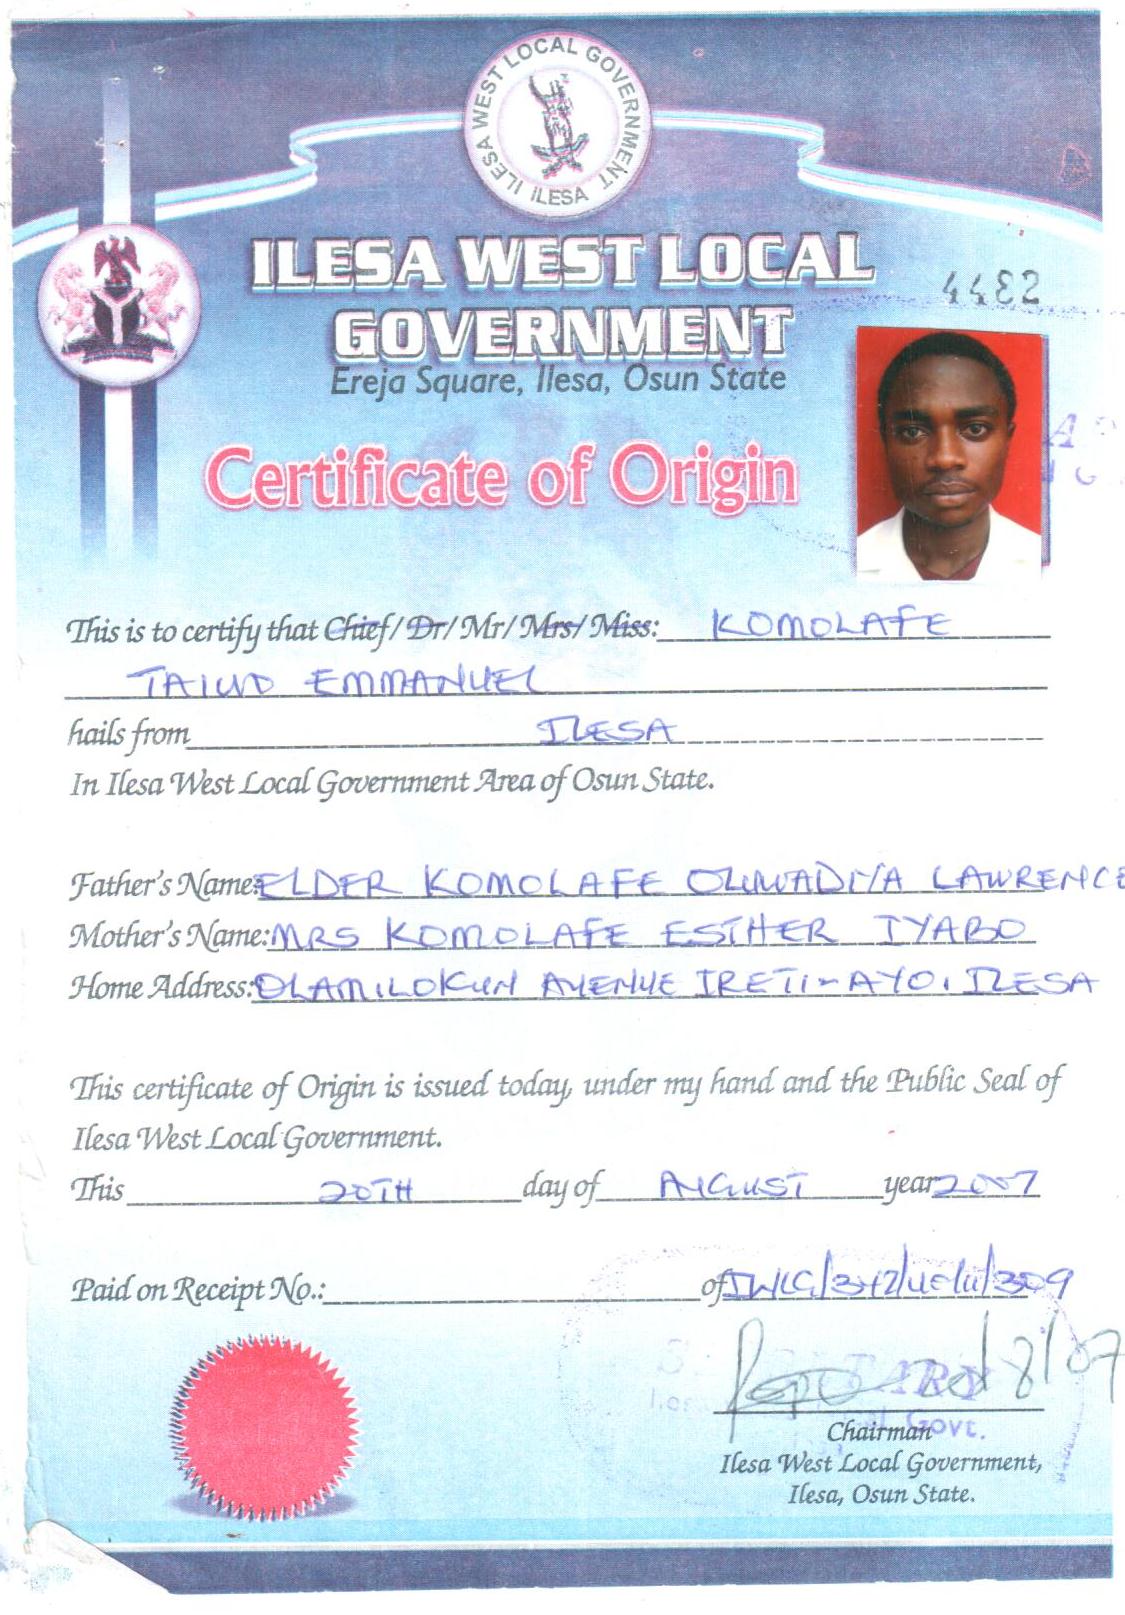 ILESA WEST LOCAL GOVERNMENT
ILESA
ILESA WEST LOCAL
GOVERNMENT
Ereja Square, Ilesa, Osun State
4482
Certificate of Origin
This is to certify that Chief/ Dr/ Mr/ Mrs/ Miss: KOMOLAFE
TAIWO EMMANUEL
hails from ILESA
In Ilesa West Local Government Area of Osun State.
Father's Name: ELDER KOMOLAFE OLUWADIYA LAWRENCE
Mother's Name: MRS KOMOLAFE ESTHER IYABO
Home Address: OLAMILOKUN AVENUE IRETI-AYO, ILESA
This certificate of Origin is issued today, under my hand and the Public Seal of
Ilesa West Local Government.
This 20TH day of AUGUST year 2007
Paid on Receipt No.: of
8/07
Govt.
Chairman
Ilesa West Local Government,
Ilesa, Osun State.